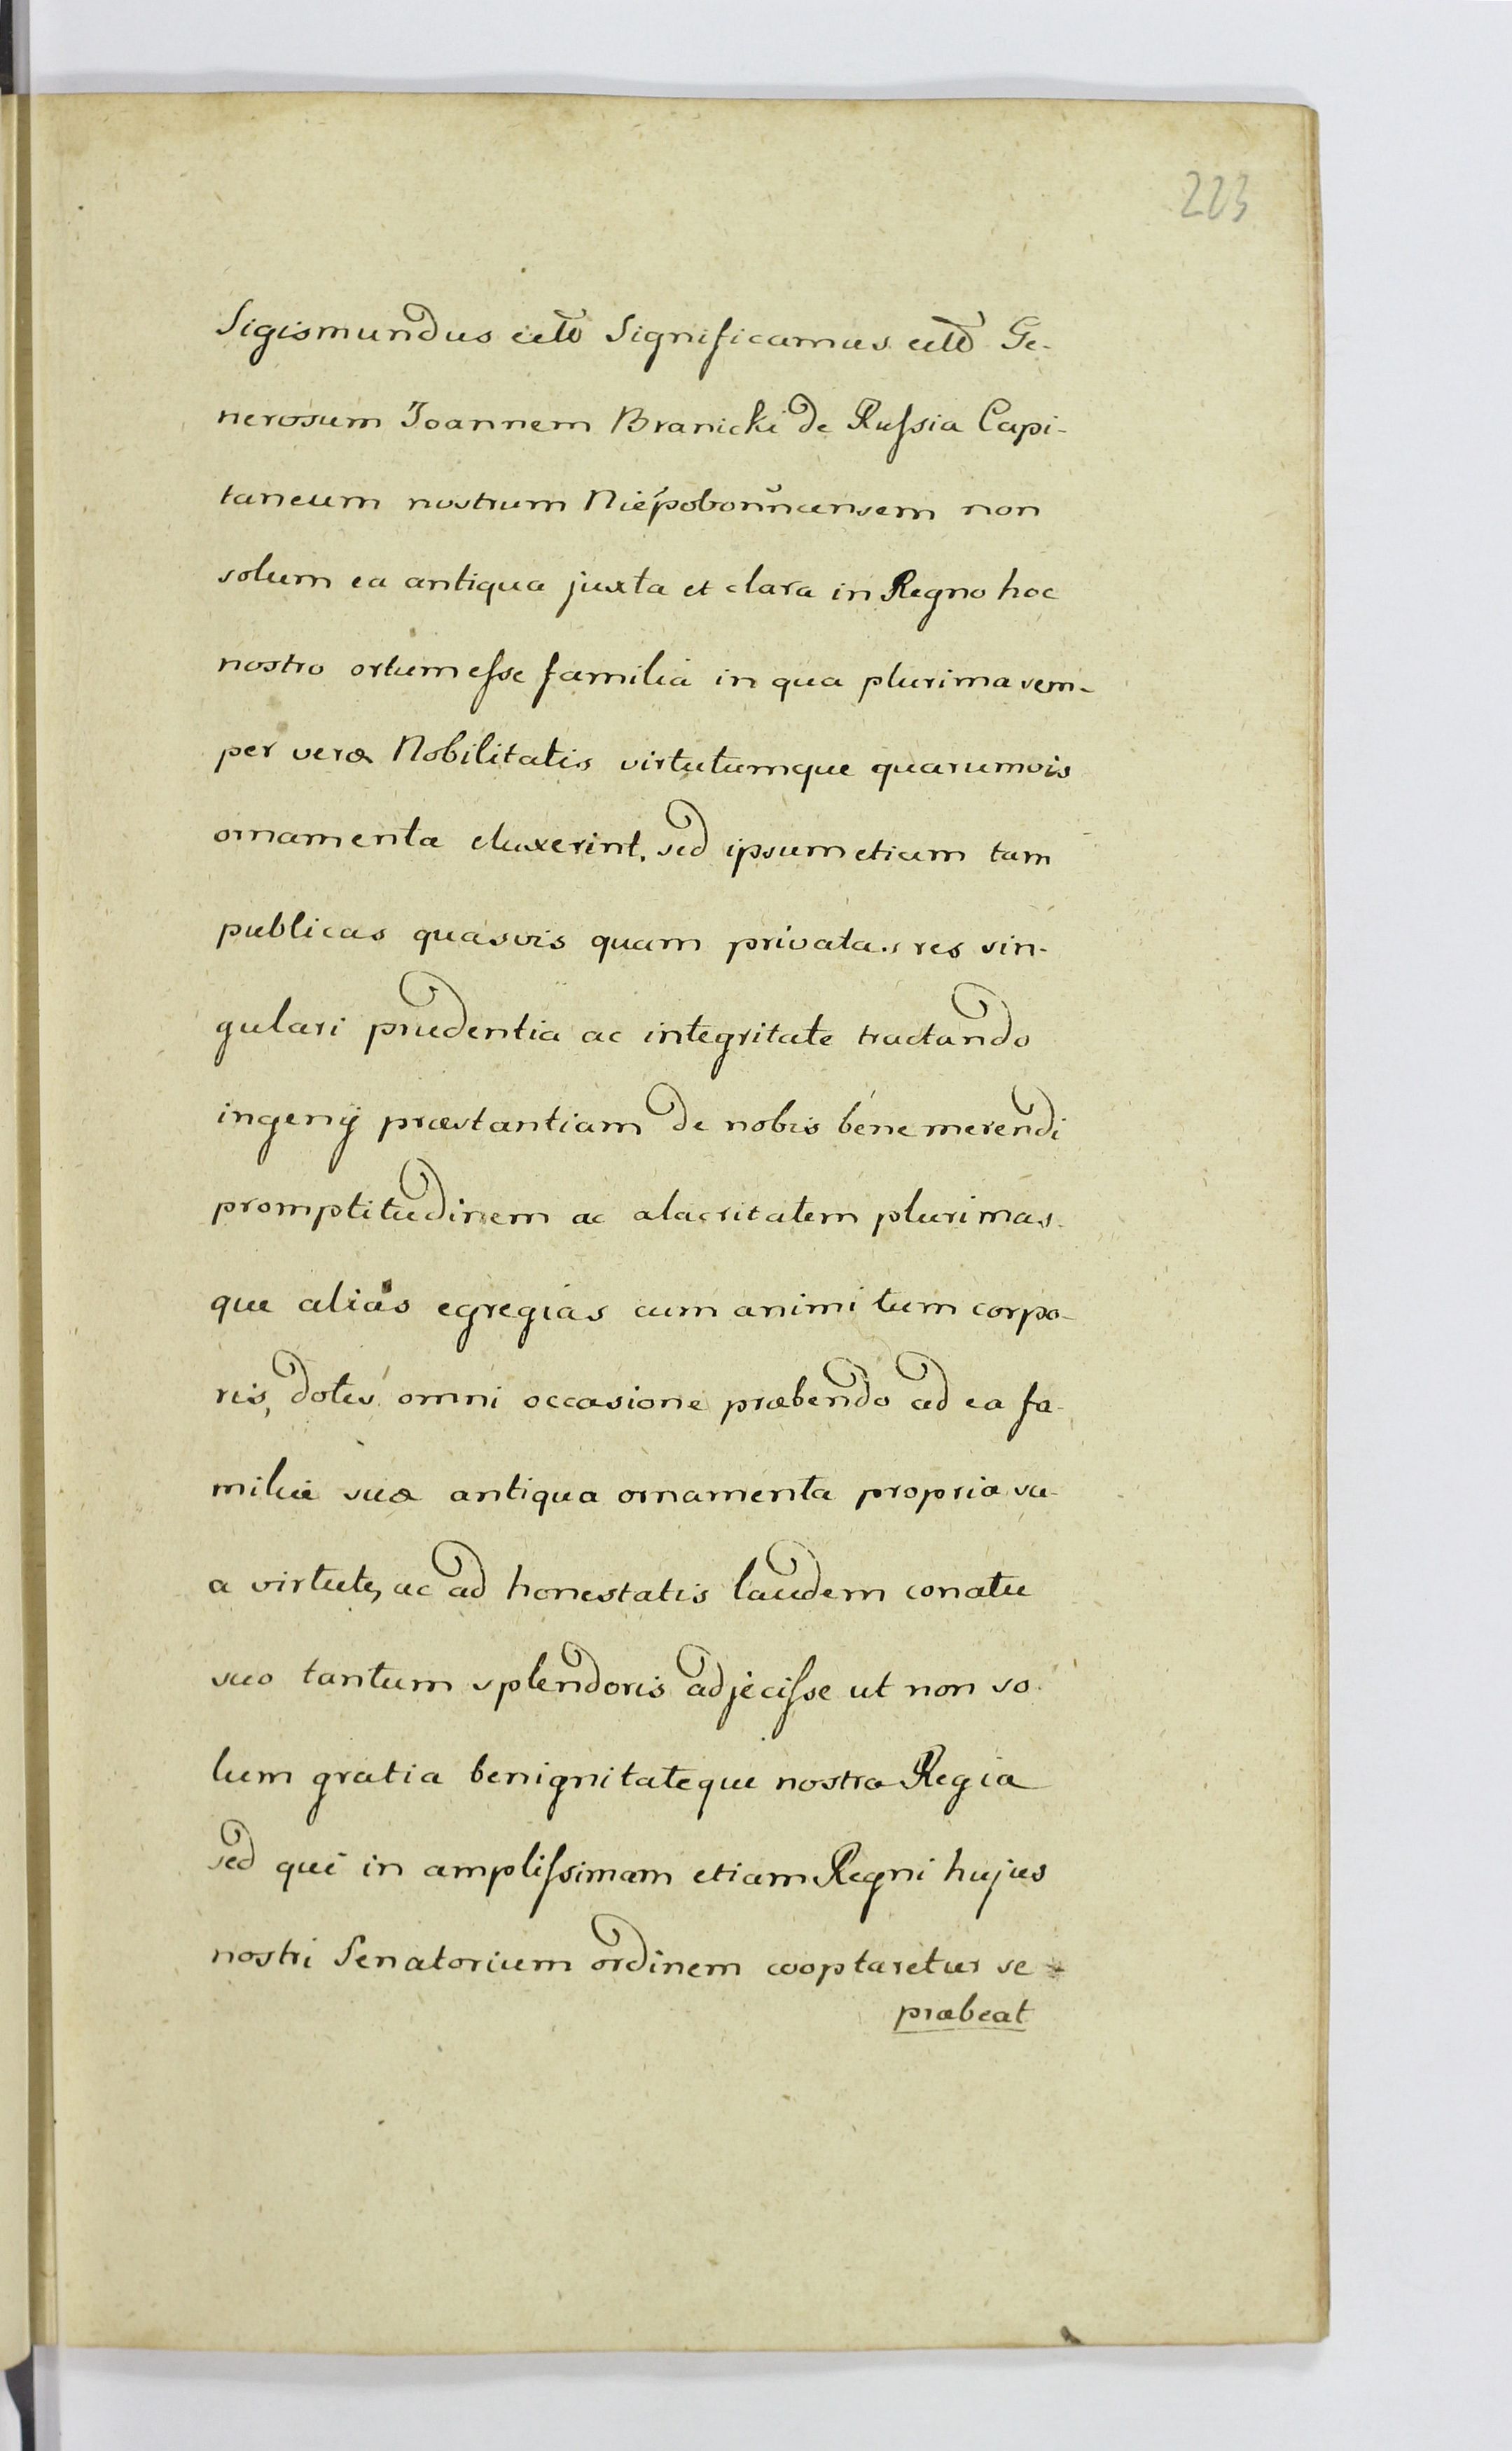 223
Sigismundus etc Significamus etc Ge-
nerosum Joannem Branicki de Ruſsia Capi-
taneum nostrum non
solum ea antiqua juxta et clara in Regno hoc
nostro ortum eſse familia in qua plurima sem-
per veræ Nobilitatis virtutumque quarumvis
ornamenta eluxerint, sed ipsum etiam tam
publicas quasvis quam privatas res sin-
gulari prudentia ac integritate tractando
ingenij præstantiam de nobis bene merendi
promptitudinem ac alacritatem plurimas-
que alias egregias cum animi tum corpo-
ris, dotes omni occasione præbendo ad ea fa-
miliæ suæ antiqua ornamenta propria su-
a virtute, ac ad honestatis laudem conatu
suo tantum splendoris adjeciſse ut non so-
lum gratia benignitateque nostra Regia
sed qui in ampliſsimam etiam Regni hujus
nostri Senatorium ordinem cooptaretur se
præbeat